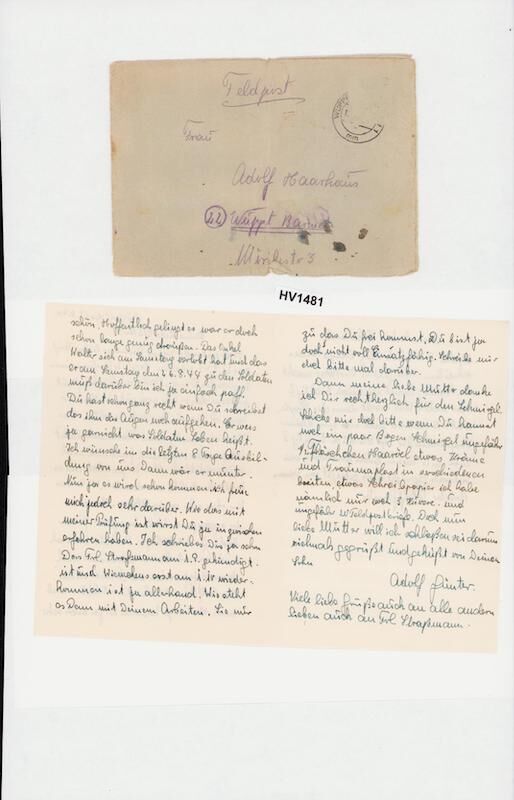 Feldpost
Frau
Adolf Haarhaus
22 Wuppt Barmen
HV1481
schön. Hoffentlich gelingt es war er doch
schon lange genug draußen. Das Onkel
Walter sich am Samstag verlobt hat und das
er am Samstag den 26.8.44 zu den Soldaten
muß darüber bin ich ja einfach paff.
Du hast schon ganz recht wenn Du schreibst
das ihm die Augen noch aufgehen. Er weis
ja garnicht was Soldaten Leben heißt.
Ich wünsche im die letzten 8 Tage Ausbil-
dung von uns Dann wär er munter
Nun ja es wird schon kommen ich freue
mich jedoch sehr darüber. Wie das mit
meiner Prüfung ist wirst Du ja inzwischen
erfahren haben. Ich schrieb es Dir ja schon
Das Frl. Straßmann am 1.9. gekündigt
ist und erst am 1. wieder-
kommen ist ja allerhand. Wie steht
es Dann mit Deinem Arbeiten. Sie nur
zu das Du frei kommst. Du bist ja
doch nicht voll Einsatzfähig. Schreibe mir
doch bitte mal darüber.
Dann meine liebe Mutter danke
ich Dir recht herzlich für den Schmirgel.
Schicke mir doch bitte wenn Du kannst
noch ein paar Bogen Schmirgel ungefähr
1 Fläschchen Haaröl etwas Kreme
und Traumaplast in verschiedenen
breiten, etwas Schreibpapier ich habe
nämlich nur noch 3 Kuver. und
ungefähr 10 Feldpostbriefe. Doch nun
liebe Mutter will ich schließen sei darum
vielmals gegrüßt und geküßt von Deinem
Sohn
Adolf Günter.
Viele liebe Grüße auch an alle andern
lieben auch an Frl. Straßmann.